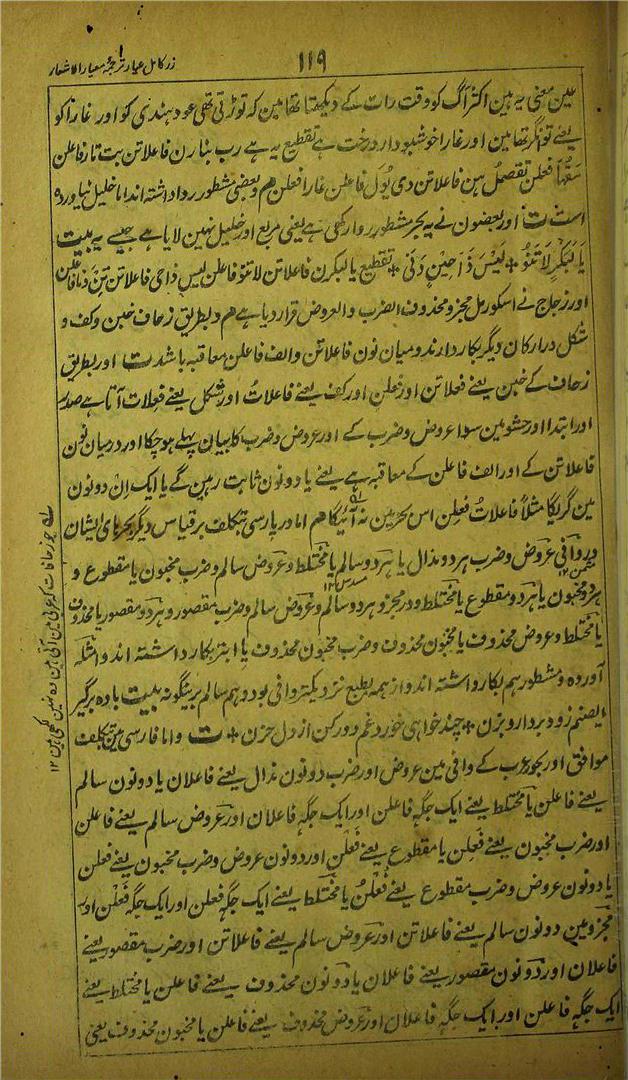 ۱۱۹
زر کامل عیار ترجمۂ معیار الاشعار
عین معنی یہ ہین اکثر آگ کو وقت رات کے دیکھتا تھا مین کہ توڑتی تھی عود ہندی کو اور غار کو
یعنے تو نگر تھا مین اور غار خوشبودار درخت ہے تقطیع یہ ہے رب بنارن فاعلاتن بت تارفاعلن
فعلن تقصمل ہن فاعلاتن دی یول فاعلن غارا فعلن هم و بعضی مشطور روا داشته اند اما خلیل نیاورده
است ت اور بعضون نے یہ بحر مشطور روا رکھی ہے یعنی مربع اور خلیل نہین لایا ہے جیسے یہ بیت
یا لبکر لا تنو + لیس ذا حین ونی + تقطیع یا لبکرن فاعلاتن لا تنو فاعلن لیس ذا حی فاعلاتن نن ونا فاعلن
اور زجاج نے اسکو رمل مجزو محذوف الضرب والعروض قرار دیا ہے هم و بطریق زحاف خبن و کف و
شکل در ارکان دیگر بکار دارند و میان نون فاعلاتن والف فاعلن معاقبہ باشد ت اور بطریق
زحاف کے خبن یعنے فعلاتن اور فعلن اور کف یعنے فاعلات اور شکل یعنے فعلات آتا ہے صدر
اور ابتدا اور حشو مین سوا عروض و ضرب کے اور عروض و ضرب کا بیان پہلے ہو چکا اور درمیان نون
فاعلاتن کے اور الف فاعلن کے معاقبہ ہے یعنے یا دونون ثابت رہین گے یا ایک ان دونون
مین گریگا مثلاً فاعلات فعلن اس بحر مین نہ آئیگا هم اما در پارسی بتکلف بر قیاس دیگر بحرہای ایشان
در وافی عروض و ضرب ہر دو مذال یا ہر دو سالم یا مختلط و عروض سالم و ضرب مخبون یا مقطوع و
ہر دو مخبون یا ہر دو مقطوع یا مختلط و در مجزو ہر دو سالم و عروض سالم و ضرب مقصور و ہر دو مقصور یا محذوف
یا مختلط و عروض محذوف یا مخبون محذوف و ضرب مخبون محذوف یا ابتر بکار داشته اند و امثله
آورده و مشطور ہم بکار داشته اند و از ہمہ بطبع نزدیکتر وافی بود و ہم سالم برینگونه بیت باده برگیر
ایصنم زود بردار و بزن + چند خواہی خورد غم دور کن از دل حزن + ت و اما فارسی مین بتکلف
موافق اور بحور عرب کے وافی مین عروض اور ضرب دونون مذال یعنے فاعلان یا دونون سالم
یعنے فاعلن یا مختلط یعنے ایک جگہ فاعلن اور ایک جگہ فاعلان اور عروض سالم یعنے فاعلن
اور ضرب مخبون یعنے فعلن یا مقطوع یعنے فعلن اور دونون عروض و ضرب مخبون یعنے فعلن
یا دونون عروض و ضرب مقطوع یعنے فعلن یا مختلط یعنے ایک جگہ فعلن اور ایک جگہ فعلن اور
مجزو مین دونون سالم یعنے فاعلاتن اور عروض سالم یعنے فاعلاتن اور ضرب مقصور یعنے
فاعلان اور دونون مقصور یعنے فاعلان یا دونون محذوف یعنے فاعلن یا مختلط یعنے
ایک جگہ فاعلن اور ایک جگہ فاعلان اور عروض محذوف یعنے فاعلن یا مخبون محذوف یعنی
جو زحافات کہ عربی مین آتی ہین وہ نہین لکھی ہین ۱۲